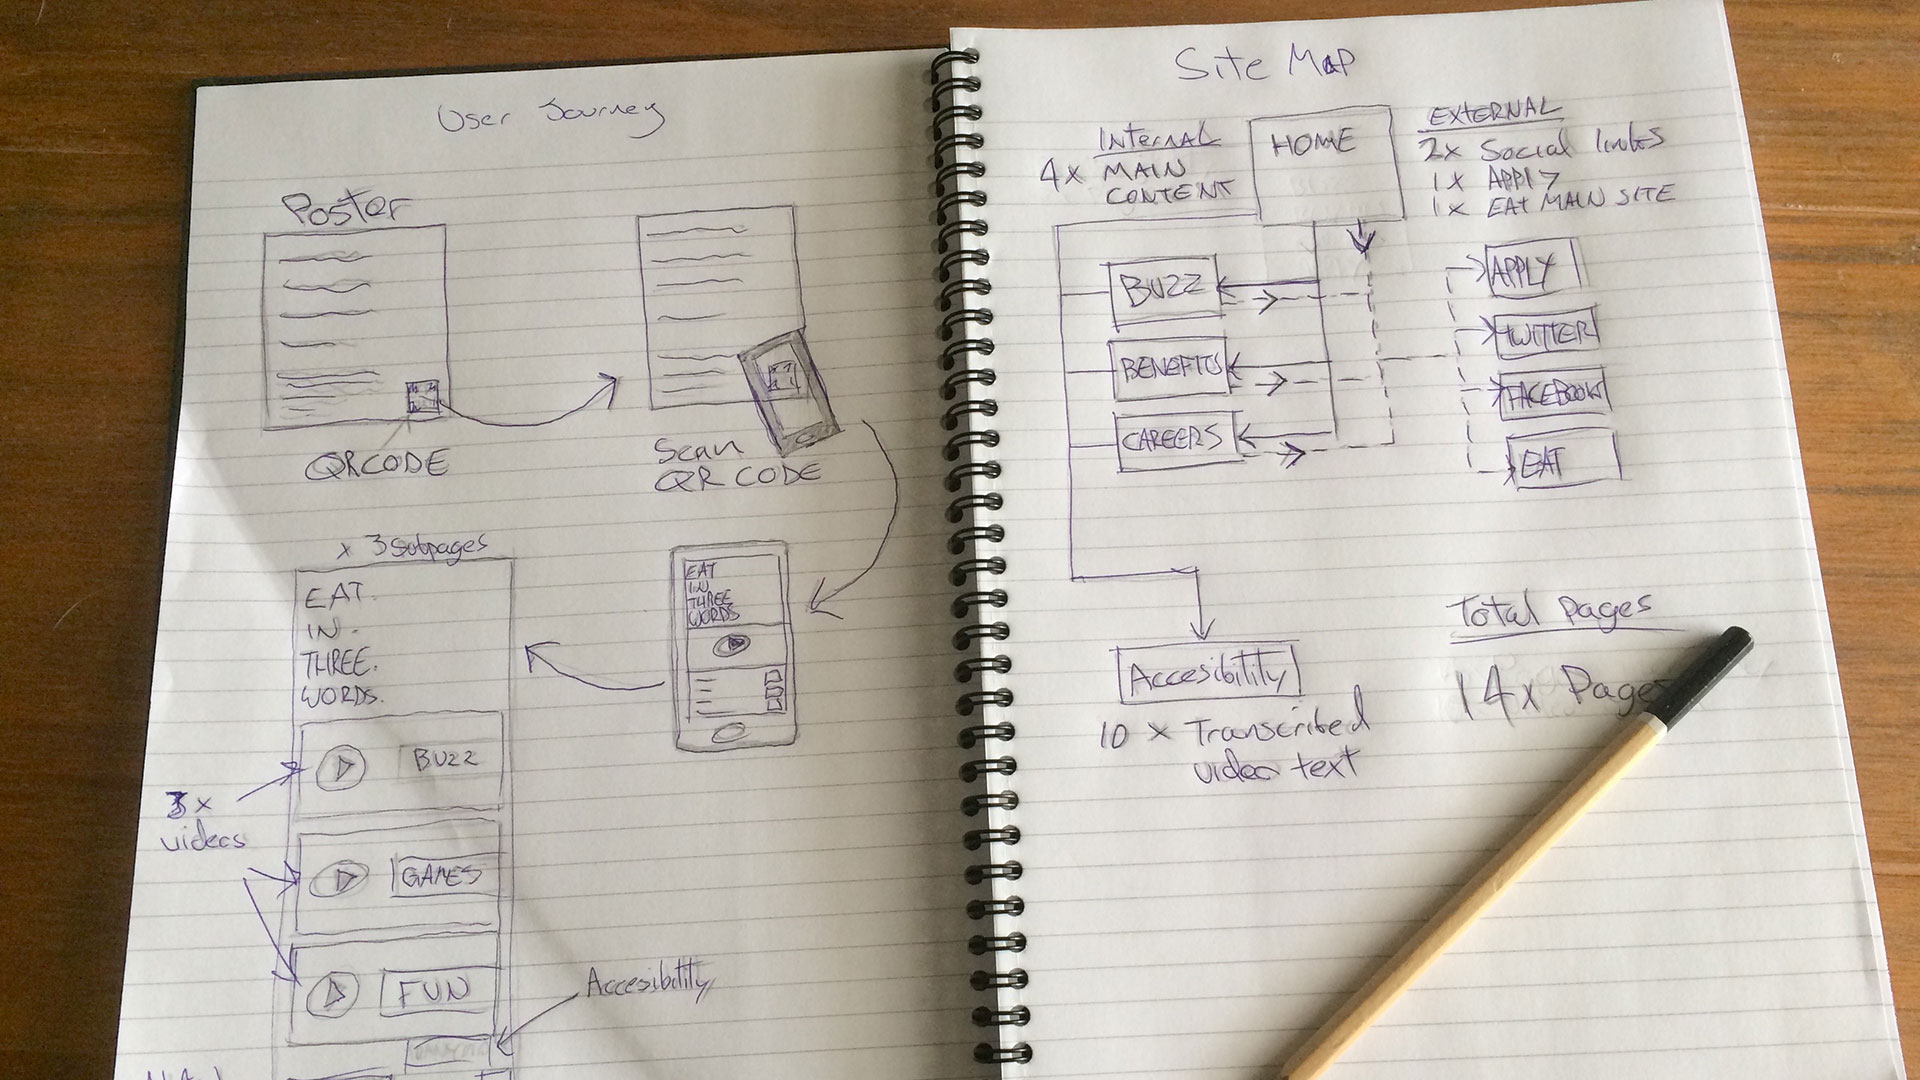 User Journey
Poster
QR CODE
Scan
QR CODE
EAT
IN
THREE
WORDS
x 3 subpages
EAT.
IN.
THREE.
WORDS.
BUZZ
3x
videos
GAMES
FUN
Accesibility
Site Map
Internal
4x MAIN
CONTENT
HOME
EXTERNAL
2x Social links
1x APPLY
1x EAT MAIN SITE
BUZZ
BENEFITS
CAREERS
APPLY
TWITTER
FACEBOOK
EAT
Accesibility
10 x Transcribed
video text
Total Pages
14x Pages